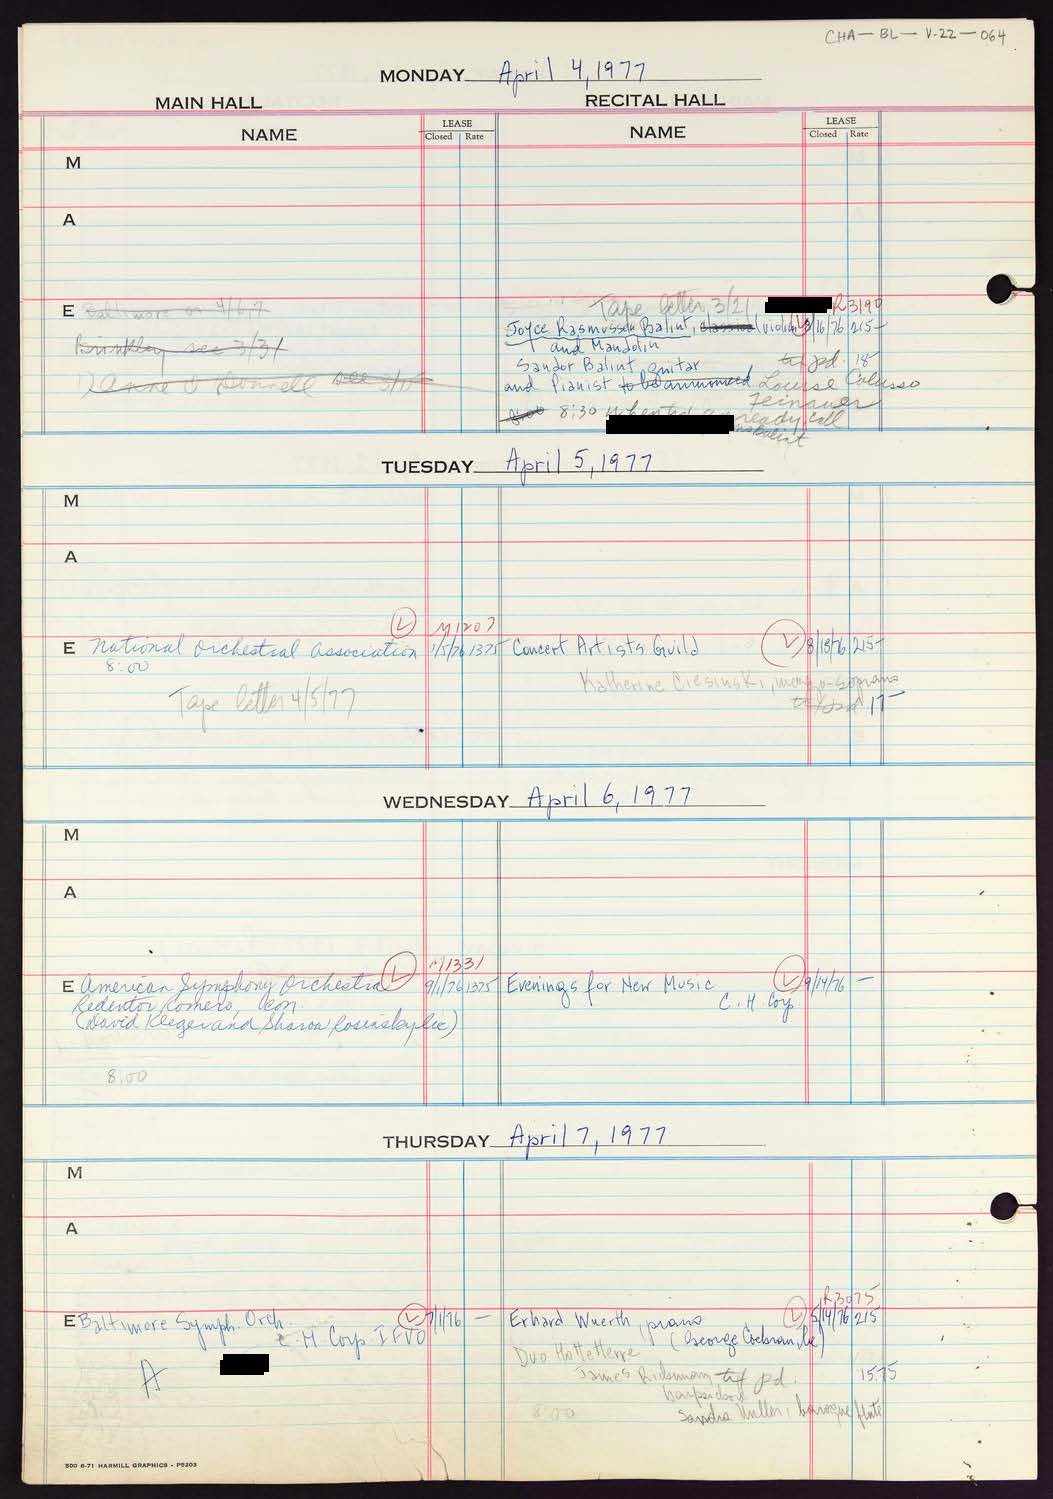 CHA-BL-V-22-064
MONDAY April 4, 1977
MAIN HALL RECITAL HALL
NAME LEASE Closed Rate NAME LEASE Closed Rate
M
A
E Baltimore on 4/6,7
Brinkley see 3/31
see 3/15
Tape letter 3/21 R3190
Joyce Rasmussen Balint, classical (violin) 3/16/76 215-
and Mandolin
Sandor Balint, guitar pd. 15
and Pianist to be announced Louise Colusso
8:30 When ready call
TUESDAY April 5, 1977
M
A
M1207
E National Orchestral Association 1/5/76 1375
8:00
Tape letter 4/5/77
Concert Artists Guild 8/18/76 215-
Katherine Ciesinski, mezzo-soprano
pd 15
WEDNESDAY April 6, 1977
M
A
M1331
E American Symphony Orchestra 9/1/76 1375
Redentor Romero, con.
(David Kleger and Sharon Rosinsky, lee)
8:00
Evenings for New Music 9/14/76 —
C. H Corp.
THURSDAY April 7, 1977
M
A
E Baltimore Symph. Orch. 7/1/76 —
C H Corp IFVO
A
R3075
Erhard Wuerth, piano 5/14/76 215
(George Cochran, lee)
Duo Hotteterre
James Richman pd. 15.75
harpsichord
8:00 Sandra Miller, baroque flute
500 6-71 HARMILL GRAPHICS - P5203